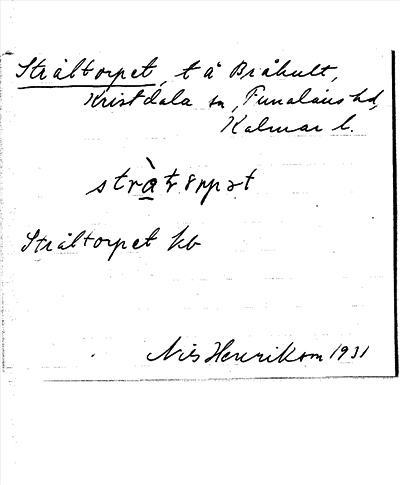 Stråltorpet, t å Bråhult,
Kristdala sn, Tunaläns hd,
Kalmar l.
Stråltorpet kb
Nils Henrikson 1931